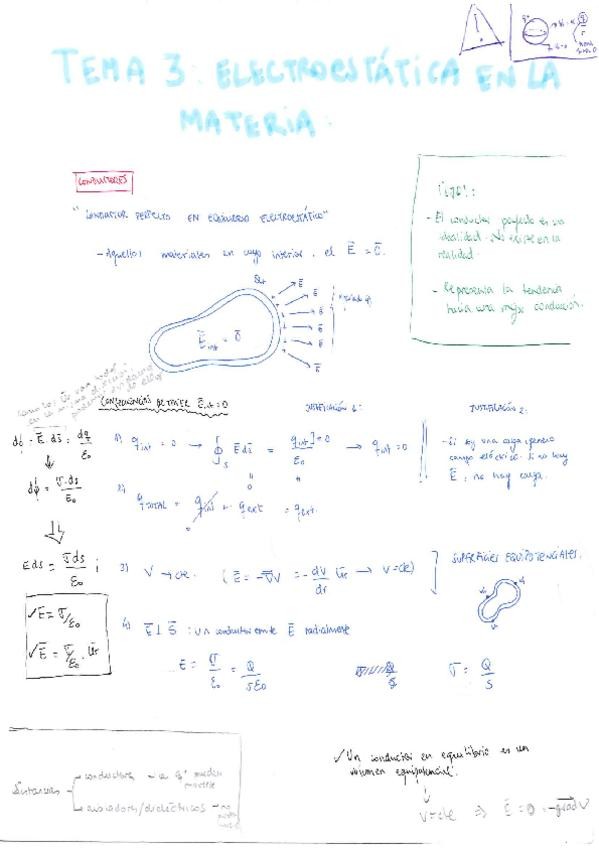 TEMA 3: ELECTROESTÁTICA EN LA
MATERIA:
CONDUCTORES
"CONDUCTOR PERFECTO EN EQUILIBRIO ELECTROSTÁTICO"
- Aquellos materiales en cuyo interior, el E⃗ = 0⃗.
¡OJO!:
- El conductor perfecto es una
idealidad. No existe en la
realidad.
- Representa la tendencia
hacia una mejor conducción.
E⃗int = 0⃗
CONSECUENCIAS DE TENER E⃗int = 0
JUSTIFICACIÓN 1:
JUSTIFICACIÓN 2:
dϕ = E⃗·ds⃗ = dq/ε₀
dϕ = σ·ds/ε₀
E ds = σ ds/ε₀ ;
✓ E = σ/ε₀
✓ E⃗ = σ/ε₀ · u⃗r
1) qint = 0 → ∮s E⃗ ds⃗ = qint/ε₀ → qint = 0
- Si hay una carga, genero
campo eléctrico. Si no hay
E⃗, no hay carga.
2) qTOTAL = qint + qext = qext
3) V → cte. (E⃗ = -∇⃗V = -dV/dr u⃗r → V = cte)
SUPERFICIES EQUIPOTENCIALES.
4) E⃗ ⊥ S⃗ : un conductor emite E⃗ radialmente
E = σ/ε₀ = Q/Sε₀
σ = Q/S
Sustancias
conductoras
aisladores/dieléctricos
✓ Un conductor en equilibrio es un
volumen equipotencial.
V = cte ⇒ E⃗ = 0 = -grad V